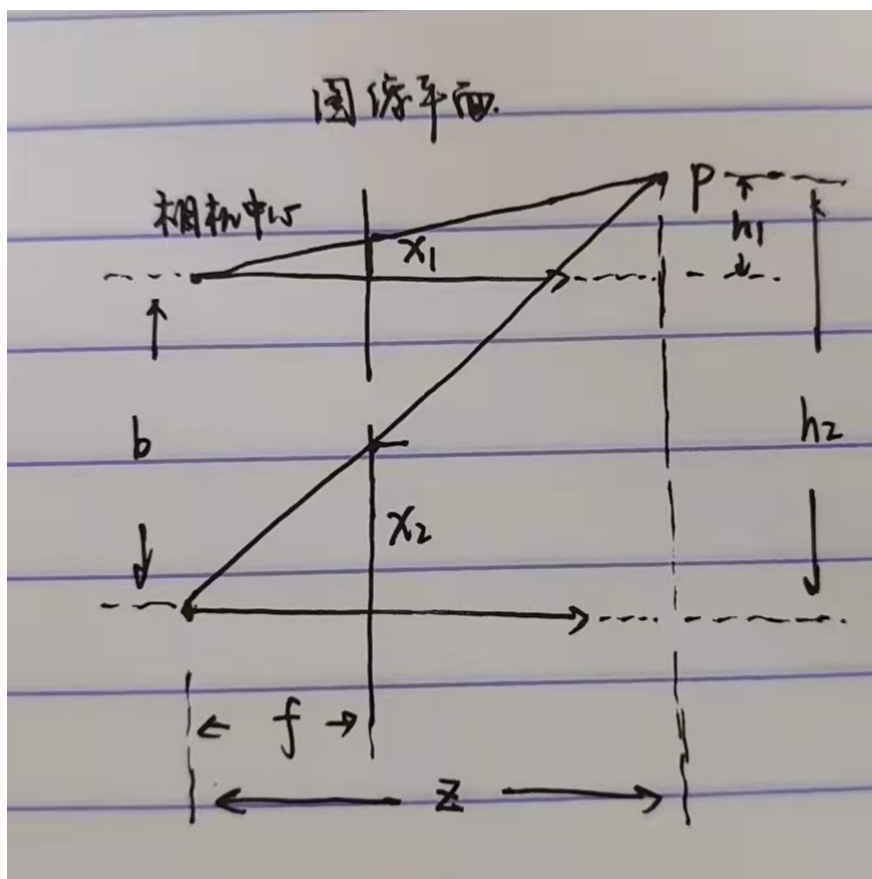 图像平面.
相机中心
P
h₁
x₁
b
h₂
x₂
f
Z